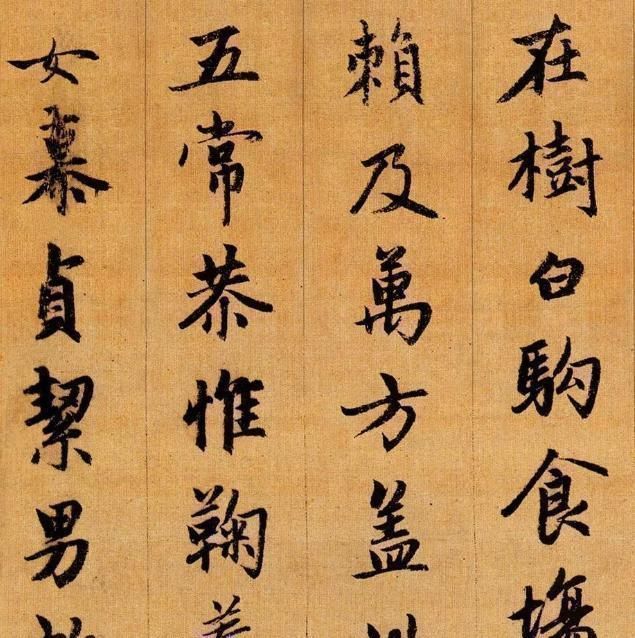 在樹白駒食場
賴及萬方盖此
五常恭惟鞠養
女慕貞絜男效